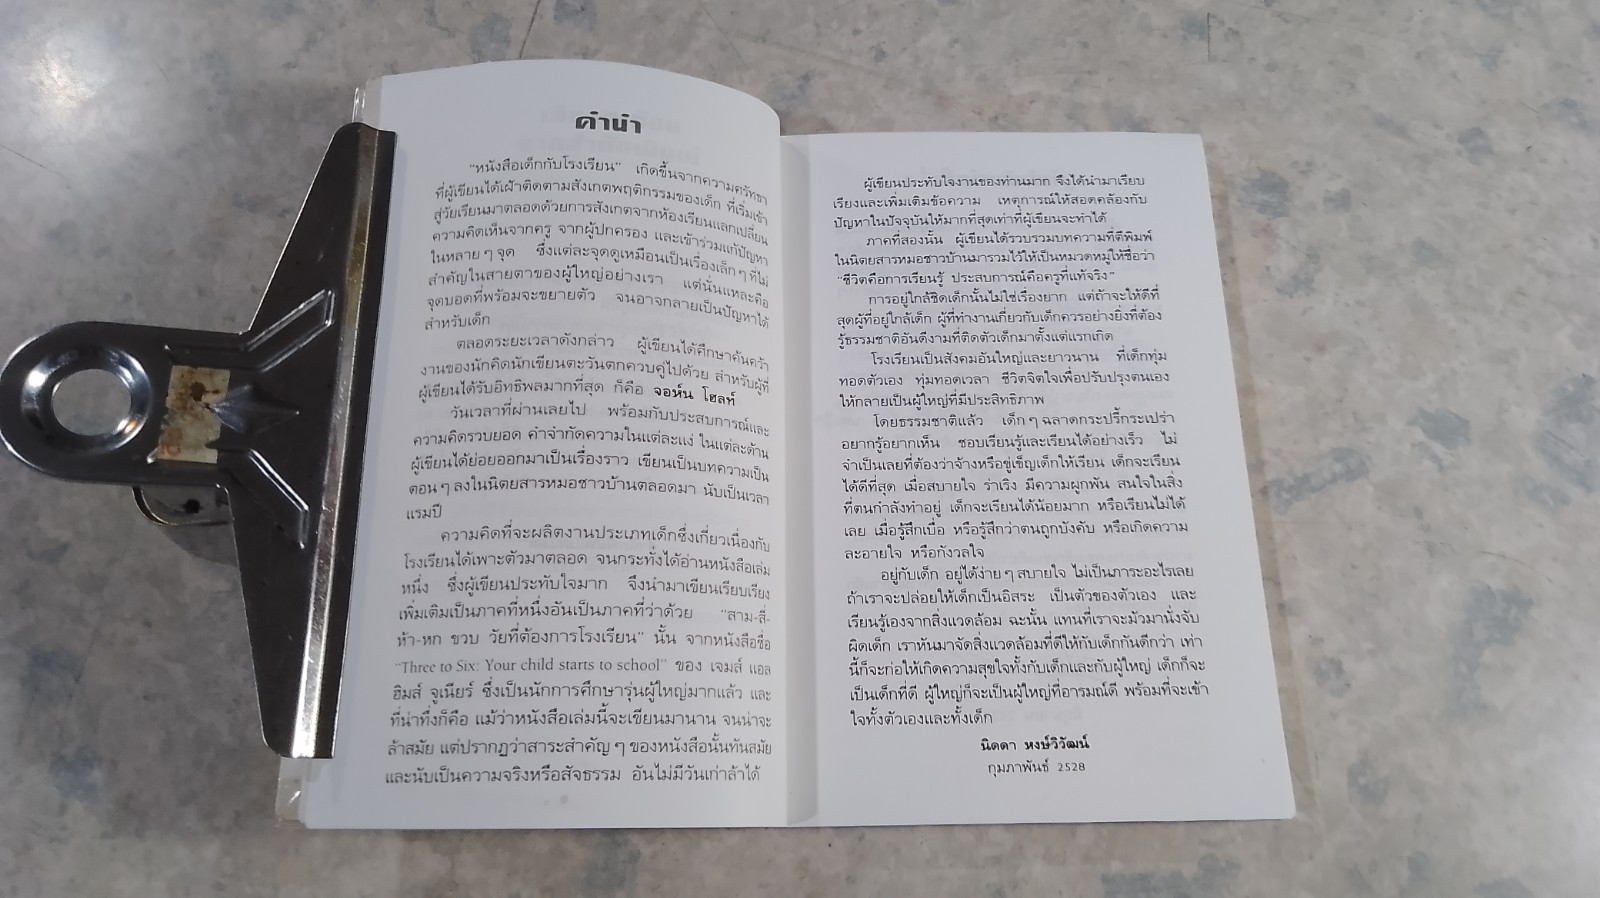 คำนำ
"หนังสือเด็กกับโรงเรียน" เกิดขึ้นจากความศรัทธา
ที่ผู้เขียนได้เฝ้าติดตามสังเกตพฤติกรรมของเด็ก ที่เริ่มเข้า
สู่วัยเรียนมาตลอดด้วยการสังเกตจากห้องเรียนแลกเปลี่ยน
ความคิดเห็นจากครู จากผู้ปกครอง และเข้าร่วมแก้ปัญหา
ในหลาย ๆ จุด ซึ่งแต่ละจุดดูเหมือนเป็นเรื่องเล็ก ๆ ที่ไม่
สำคัญในสายตาของผู้ใหญ่อย่างเรา แต่นั่นแหละคือ
จุดบอดที่พร้อมจะขยายตัว จนอาจกลายเป็นปัญหาได้
สำหรับเด็ก
ตลอดระยะเวลาดังกล่าว ผู้เขียนได้ศึกษาค้นคว้า
งานของนักคิดนักเขียนตะวันตกควบคู่ไปด้วย สำหรับผู้ที่
ผู้เขียนได้รับอิทธิพลมากที่สุด ก็คือ จอห์น โฮลท์
วันเวลาที่ผ่านเลยไป พร้อมกับประสบการณ์และ
ความคิดรวบยอด คำจำกัดความในแต่ละแง่ ในแต่ละด้าน
ผู้เขียนได้ย่อยออกมาเป็นเรื่องราว เขียนเป็นบทความเป็น
ตอน ๆ ลงในนิตยสารหมอชาวบ้านตลอดมา นับเป็นเวลา
แรมปี
ความคิดที่จะผลิตงานประเภทเด็กซึ่งเกี่ยวเนื่องกับ
โรงเรียนได้เพาะตัวมาตลอด จนกระทั่งได้อ่านหนังสือเล่ม
หนึ่ง ซึ่งผู้เขียนประทับใจมาก จึงนำมาเขียนเรียบเรียง
เพิ่มเติมเป็นภาคที่หนึ่งอันเป็นภาคที่ว่าด้วย "สาม-สี่-
ห้า-หก ขวบ วัยที่ต้องการโรงเรียน" นั้น จากหนังสือชื่อ
"Three to Six: Your child starts to school" ของ เจมส์ แอล
ฮิมส์ จูเนียร์ ซึ่งเป็นนักการศึกษารุ่นผู้ใหญ่มากแล้ว และ
ที่น่าทึ่งก็คือ แม้ว่าหนังสือเล่มนี้จะเขียนมานาน จนน่าจะ
ล้าสมัย แต่ปรากฏว่าสาระสำคัญ ๆ ของหนังสือนั้นทันสมัย
และนับเป็นความจริงหรือสัจธรรม อันไม่มีวันเก่าล้าได้
ผู้เขียนประทับใจงานของท่านมาก จึงได้นำมาเรียบ
เรียงและเพิ่มเติมข้อความ เหตุการณ์ให้สอดคล้องกับ
ปัญหาในปัจจุบันให้มากที่สุดเท่าที่ผู้เขียนจะทำได้
ภาคที่สองนั้น ผู้เขียนได้รวบรวมบทความที่ตีพิมพ์
ในนิตยสารหมอชาวบ้านมารวมไว้ให้เป็นหมวดหมู่ให้ชื่อว่า
"ชีวิตคือการเรียนรู้ ประสบการณ์คือครูที่แท้จริง"
การอยู่ใกล้ชิดเด็กนั้นไม่ใช่เรื่องยาก แต่ถ้าจะให้ดีที่
สุดผู้ที่อยู่ใกล้เด็ก ผู้ที่ทำงานเกี่ยวกับเด็กควรอย่างยิ่งที่ต้อง
รู้ธรรมชาติอันดีงามที่ติดตัวเด็กมาตั้งแต่แรกเกิด
โรงเรียนเป็นสังคมอันใหญ่และยาวนาน ที่เด็กทุ่ม
ทอดตัวเอง ทุ่มทอดเวลา ชีวิตจิตใจเพื่อปรับปรุงตนเอง
ให้กลายเป็นผู้ใหญ่ที่มีประสิทธิภาพ
โดยธรรมชาติแล้ว เด็ก ๆ ฉลาดกระปรี้กระเปร่า
อยากรู้อยากเห็น ชอบเรียนรู้และเรียนได้อย่างเร็ว ไม่
จำเป็นเลยที่ต้องว่าจ้างหรือขู่เข็ญเด็กให้เรียน เด็กจะเรียน
ได้ดีที่สุด เมื่อสบายใจ ร่าเริง มีความผูกพัน สนใจในสิ่ง
ที่ตนกำลังทำอยู่ เด็กจะเรียนได้น้อยมาก หรือเรียนไม่ได้
เลย เมื่อรู้สึกเบื่อ หรือรู้สึกว่าตนถูกบังคับ หรือเกิดความ
ละอายใจ หรือกังวลใจ
อยู่กับเด็ก อยู่ได้ง่าย ๆ สบายใจ ไม่เป็นภาระอะไรเลย
ถ้าเราจะปล่อยให้เด็กเป็นอิสระ เป็นตัวของตัวเอง และ
เรียนรู้เองจากสิ่งแวดล้อม ฉะนั้น แทนที่เราจะมัวมานั่งจับ
ผิดเด็ก เราหันมาจัดสิ่งแวดล้อมที่ดีให้กับเด็กกันดีกว่า เท่า
นี้ก็จะก่อให้เกิดความสุขใจทั้งกับเด็กและกับผู้ใหญ่ เด็กก็จะ
เป็นเด็กที่ดี ผู้ใหญ่ก็จะเป็นผู้ใหญ่ที่อารมณ์ดี พร้อมที่จะเข้า
ใจทั้งตัวเองและทั้งเด็ก
นิดดา หงษ์วิวัฒน์
กุมภาพันธ์ 2528